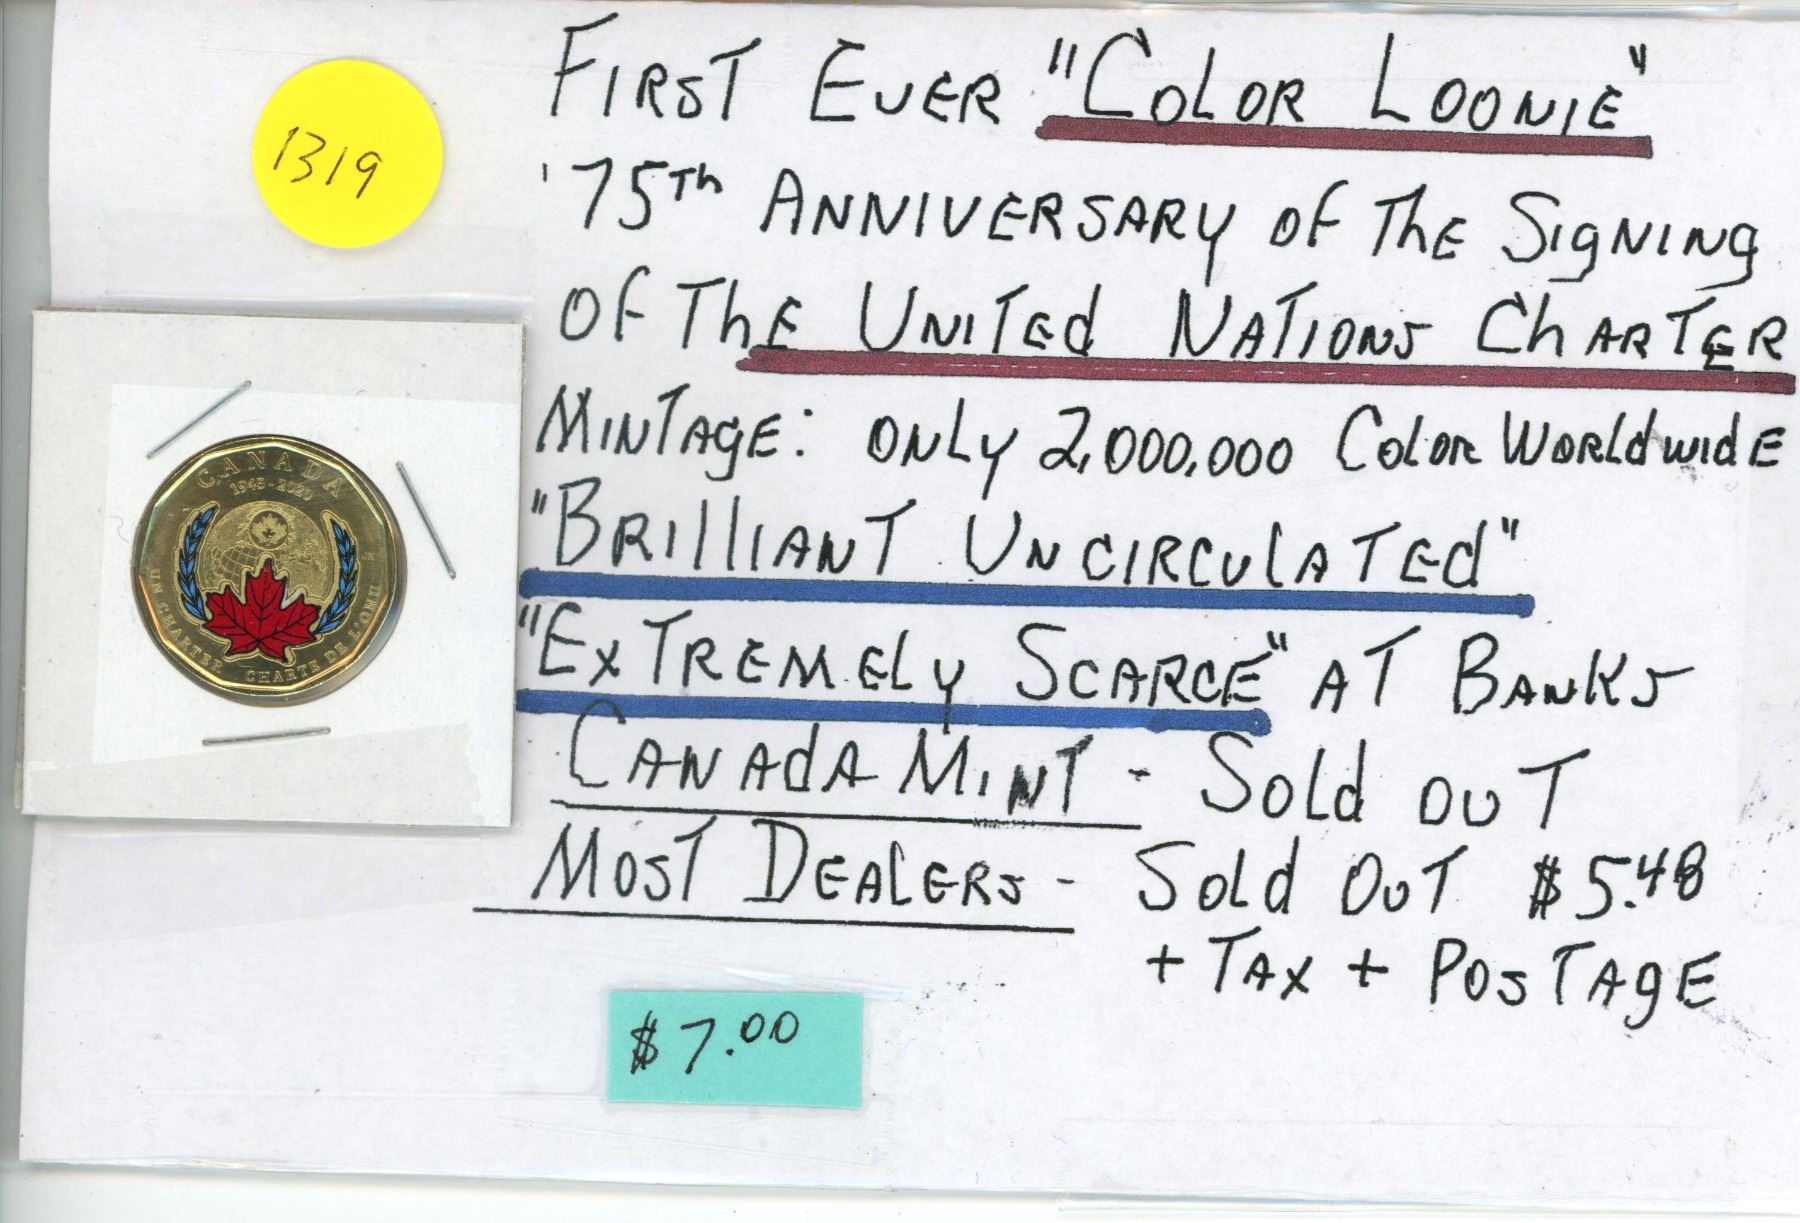 1319
FIRST EVER "COLOR LOONIE"
'75Th ANNIVERSARY Of The SigNiNg
Of The UNiTEd NATIONS ChARTER
MINTAgE: ONLy 2,000,000 Color Worldwide
"BRIllIANT UNCIRCulATEd"
"EXTREMELy SCARCE" AT BANKS
CANAdA MiNT - Sold OuT
MOST DEALERS - Sold OuT $5.48
+ TAX + POSTAgE
$7.00
CANADA
1945-2020
JH
UN CHARTER CHARTE DE L'ONU